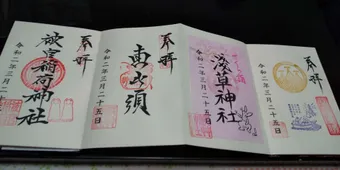 奉拝
浅草神社
令和二年三月二十五日
奉拝
恵比須
令和二年三月二十五日
奉拝
被官稲荷神社
令和二年三月二十五日
奉拝
令和二年三月二十五日